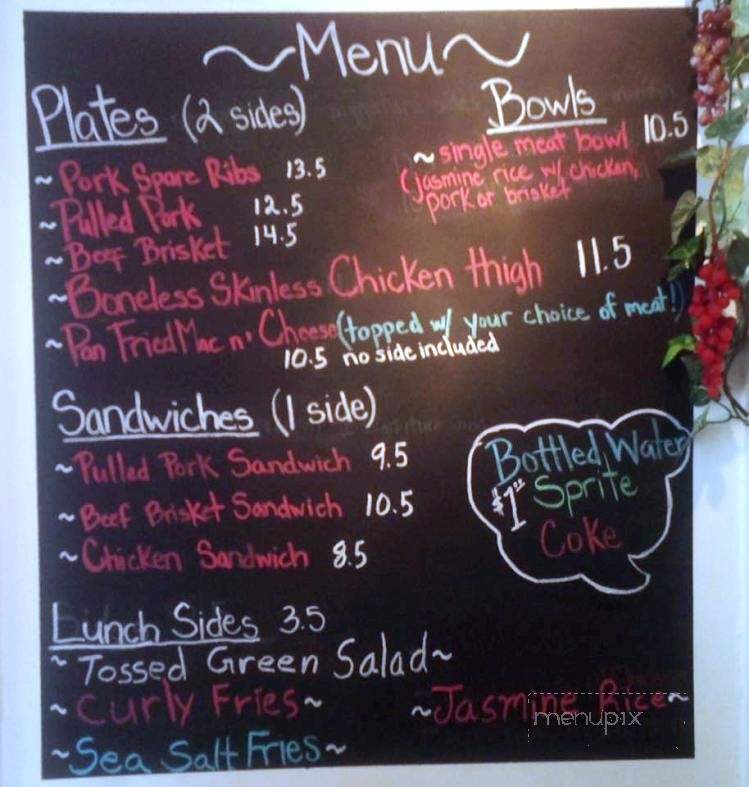 ~Menu~
Plates (2 sides)
~Pork Spare Ribs 13.5
~Pulled Pork 12.5
~Beef Brisket 14.5
~Boneless Skinless Chicken thigh 11.5
~Pan Fried Mac n' Cheese (topped w/ your choice of meat!)
10.5 no side included
Bowls
~single meat bowl 10.5
(jasmine rice w/ chicken,
pork or brisket
Sandwiches (1 side)
~Pulled Pork Sandwich 9.5
~Beef Brisket Sandwich 10.5
~Chicken Sandwich 8.5
Bottled Water
$1.00 Sprite
Coke
Lunch Sides 3.5
~Tossed Green Salad~
~Curly Fries~
~Jasmine Rice~
~Sea Salt Fries~
menupix